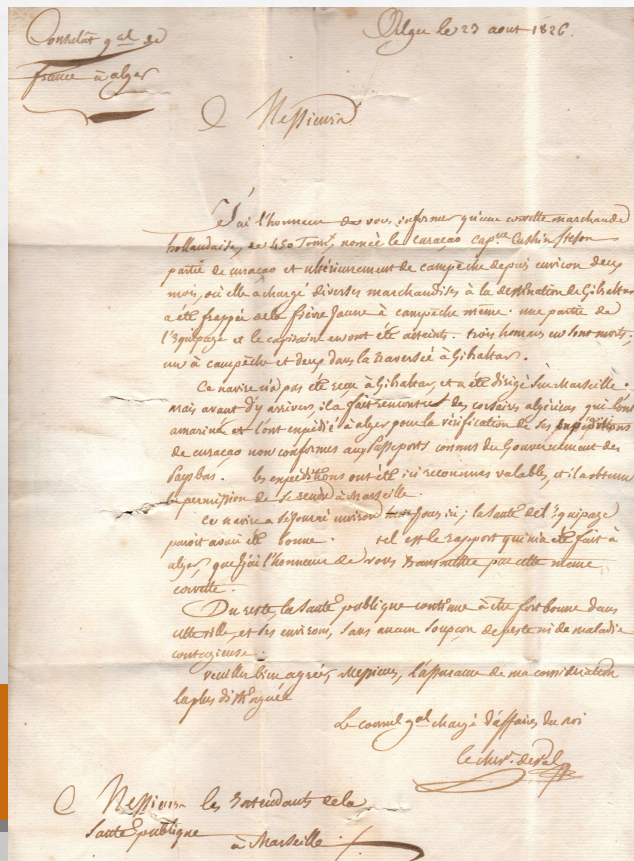 Consulat g.al de
france à alger
Alger le 23 aout 1826.
Messieurs
J'ai l'honneur de vous informer qu'une corvette marchande
hollandaise, de 450 Tonn.x, nomée le curaçao cap.ne
partie de curaçao et ultérieurement de campêche depuis environ deux
mois, où elle a chargé diverses marchandises à la destination de Gibraltar
a été frappée de la fièvre Jaune à campêche même. une partie de
l'Equipage et le capitaine en ont été atteints. trois hommes en sont morts,
un à campêche et deux dans la traversée à Gibraltar.
Ce navire n'a pas été reçu à Gibraltar, et a été dirigé sur Marseille.
mais avant d'y arriver, il a fait rencontre des corsaires algériens qui l'ont
amariné et l'ont expédié à alger pour la vérification de ses expéditions
de curaçao non conformes aux Passeports connus du Gouvernement des
Pays bas. les expéditions ont été ici reconnues valables, et il a obtenu
la permission de se rendre à Marseille.
ce navire a séjourné environ jours ici; la santé de l'Equipage
paroit avoir été bonne. tel est le rapport qui m'a été fait à
alger, que j'ai l'honneur de vous transmettre par cette même
corvette.
Du reste, la santé publique continue à être fort bonne dans
cette ville et ses environs, sans aucun soupçon de peste ni de maladie
contagieuse.
veuillez bien agréer, Messieurs, l'assurance de ma considération
la plus distinguée
Le consul g.al chargé d'affaires du roi
le chev.r deval
Messieurs les Intendants de la
Santé publique
à Marseille